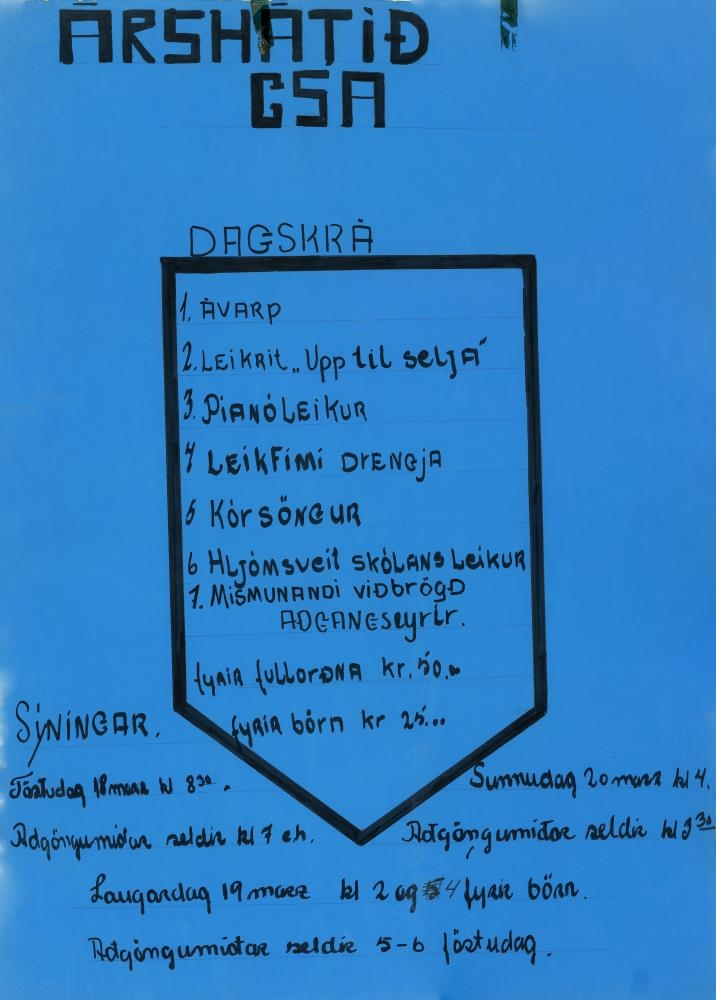 ÁRSHÁTÍÐ
GSA
DAGSKRÁ
1. ÁVARP
2. LEIKRIT „UPP til selja"
3. PÍANÓLEIKUR
4 LEIKFIMI DRENGJA
5 KÓRSÖNGUR
6 HLJÓMSVEIT SKÓLANS LEIKUR
7. MISMUNANDI VIÐBRÖGÐ
AÐGANGSeyrir.
fyrir fullorðna kr. 50..
fyrir börn kr 25...
SÝNINGAR.
Föstudag 18 mars kl 8 30 .
Aðgöngumiðar seldir kl 7 e.h.
Sunnudag 20 mars kl 4.
Aðgöngumiðar seldir kl 3 30
Laugardag 19 mars kl 2 og 4 fyrir börn.
Aðgöngumiðar seldir 5-6 föstudag.